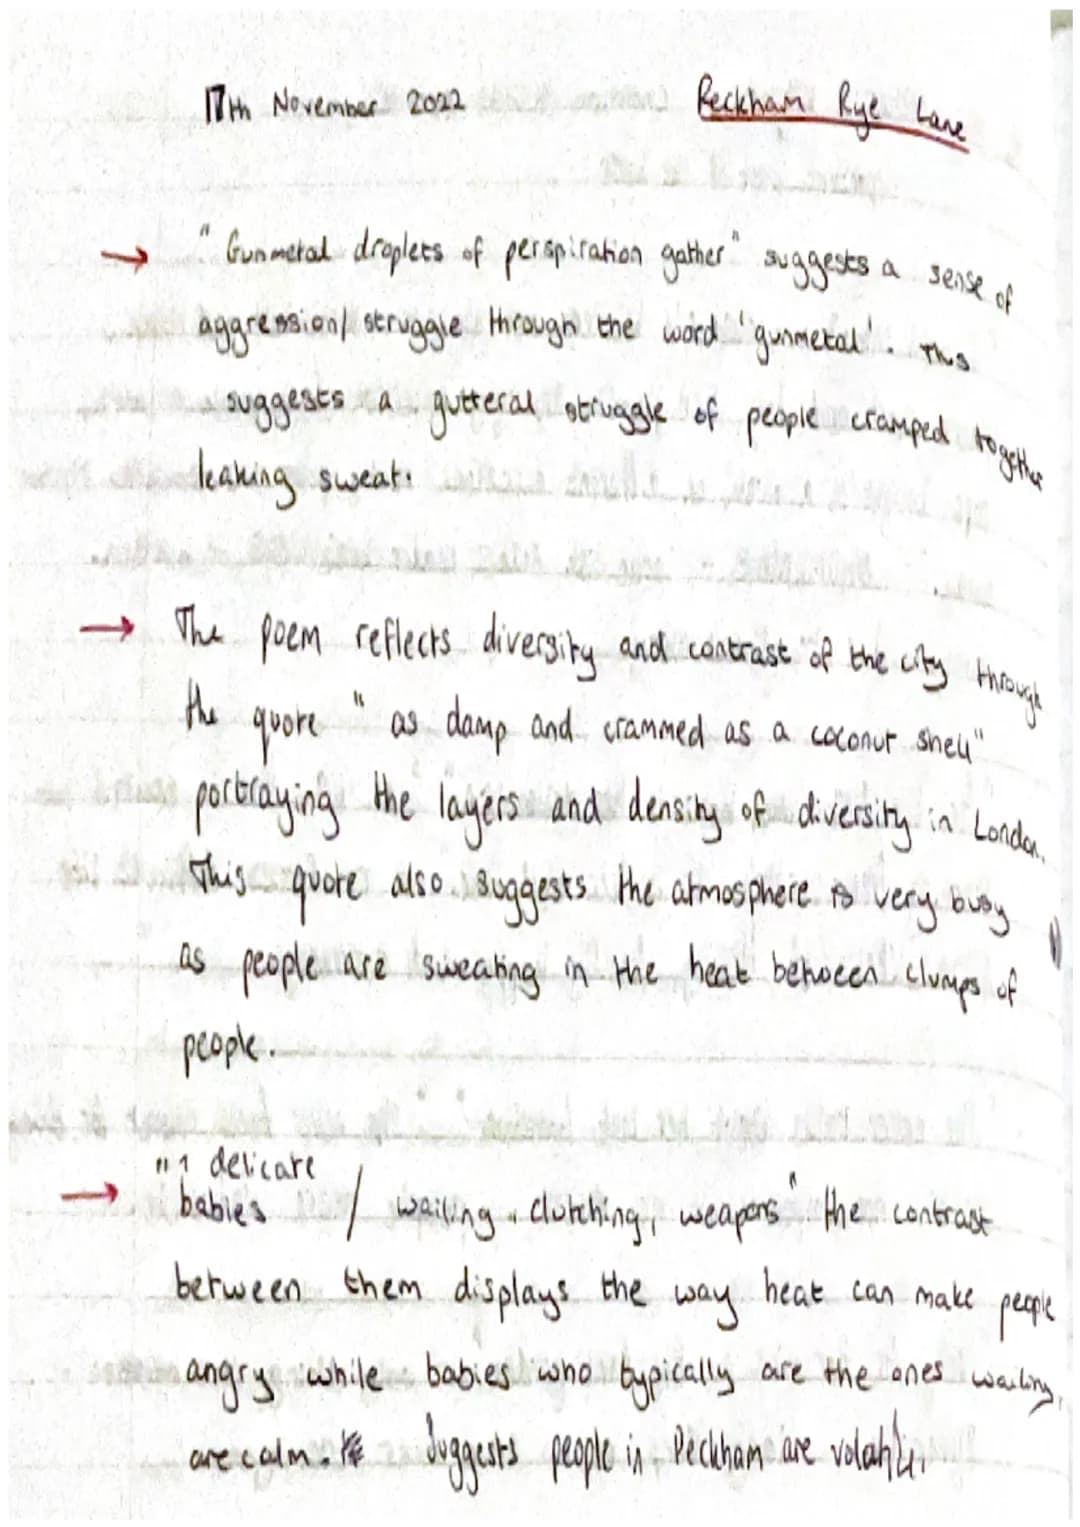 17th November 2022 Peckham Rye Lane
→ "Gunmetal droplets of perspiration gather" suggests a sense of
aggression/struggle through the word 'gunmetal'. This
suggests a gutteral struggle of people cramped together
leaking sweat.
→ The poem reflects diversity and contrast of the city through
the quote "as damp and crammed as a coconut shell"
portraying the layers and density of diversity in London.
This quote also suggests the atmosphere is very busy
as people are sweating in the heat between clumps of
people.
delicate
→ babies / wailing, clutching, weapons" the contrast
between them displays the way heat can make people
angry while babies who typically are the ones wailing,
are calm. Suggests people in Peckham are volatile.